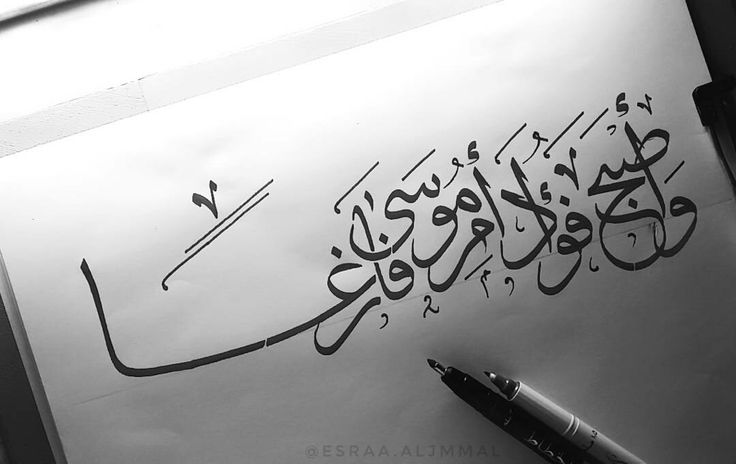 وَأَصْبَحَ فُؤَادُ أُمِّ مُوسَىٰ فَارِغًا
@ESRAA.ALJMMAL